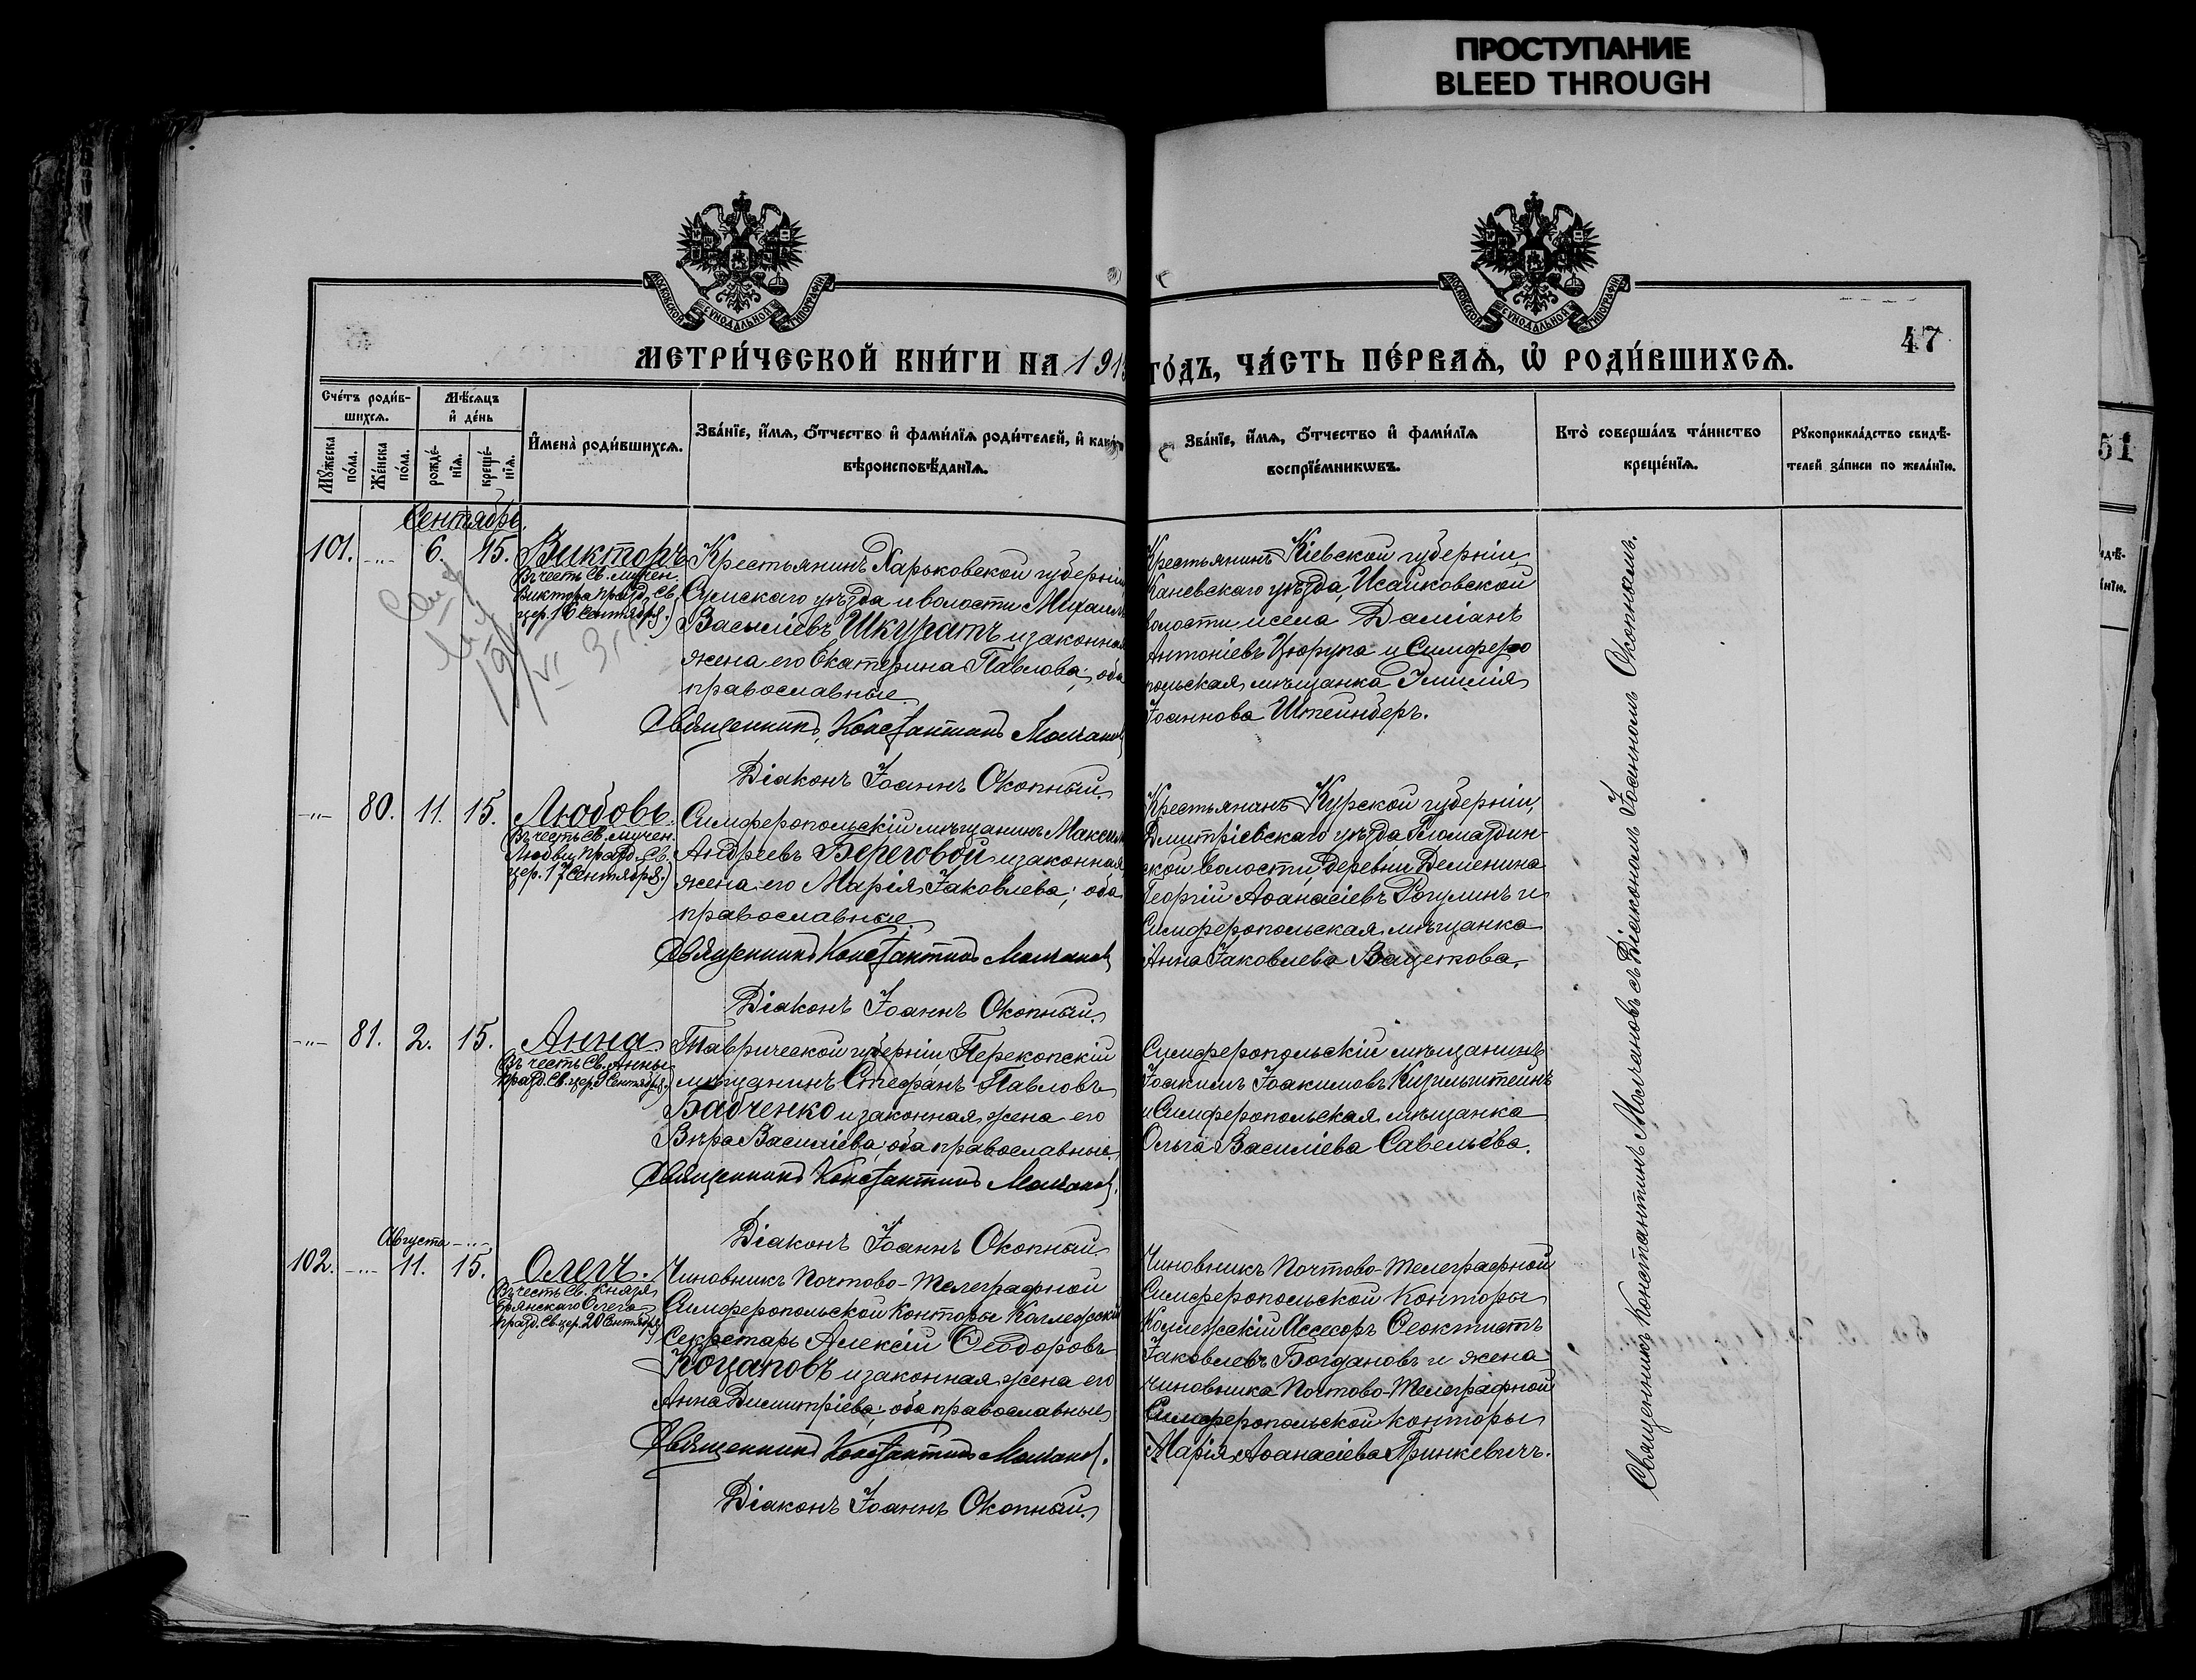 ПРОСТУПАНИЕ
BLEED THROUGH
МОСКОВСКОЙ СѴНОДАЛЬНОЙ ТИПОГРАФІИ
МОСКОВСКОЙ СѴНОДАЛЬНОЙ ТИПОГРАФІИ
47
МЕТРИ́ЧЕСКОЙ КНИ́ГИ НА 191
ГО́ДЪ, ЧА́СТЬ ПЕ́РВАѦ, Ѡ҆ РОДИ́ВШИХСѦ.
Сче́тъ роди́в-
шихсѧ.
Мѣ́сѧцъ
и҆ де́нь
Мꙋ́жеска по́ла.
Же́нска по́ла.
рожде́-
нїѧ.
креще́-
нїѧ.
И҆мена̀ роди́вшихсѧ.
Зва́нїе, и҆́мѧ, ѻ҆́тчество и҆ фами́лїѧ роди́телей, и҆ како́
вѣроисповѣ́данїѧ.
Зва́нїе, и҆́мѧ, ѻ҆́тчество и҆ фами́лїѧ
воспрїе́мникѡвъ.
Кто̀ соверша́лъ та́инство
креще́нїѧ.
Рꙋкоприкла́дство свидѣ́-
телей за́писи по жела́нїю.
51
Сентябрь.
101. -"- 6. 15. Викторъ
Въ честь Св. мучен.
Виктора празд. Св.
цер. 16 Сентября.)
Крестьянинъ Харьковской губерніи,
Сумскаго уѣзда и волости Михаилъ
Василіевъ Шкуратъ и законная
жена его Екатерина Павлова; оба
православные
Священникъ Константинъ Молчановъ
Діаконъ Іоаннъ Окопный.
Крестьянинъ Кіевской губерніи
Каневскаго уѣзда, Исайковской
волости и села Даміанъ
Антоніевъ Цюрупа и Симферо
польская мѣщанка Эмилія
Іоаннова Штейнберъ.
-"- 80. 11. 15. Любовь
Въ честь Св. мучен.
Любви празд. Св.
цер. 17 Сентября.)
Симферопольскій мѣщанинъ Максимъ
Андреевъ Береговой и законная
жена его Марія Іаковлева; оба
православные
Священникъ Константинъ Молчановъ
Діаконъ Іоаннъ Окопный.
Крестьянинъ Курской губерніи,
Дмитріевскаго уѣзда,
ской волости, деревни Деменина
Георгій Аѳанасіевъ Рогулинъ и
Симферопольская мѣщанка
Анна Іаковлева
-"- 81. 2. 15. Анна
Въ честь Св. Анны
празд. Св. цер. 9 Сентября.)
Таврической губерніи Перекопскій
мѣщанинъ Стефанъ Павловъ
Бабченко и законная жена его
Вѣра Василіева; оба православные.
Священникъ Константинъ Молчановъ.
Діаконъ Іоаннъ Окопный.
Симферопольскій мѣщанинъ
Іоакимъ Іоакимовъ Кизильштейнъ
и Симферопольская мѣщанка
Ольга Василіева Савельева.
Августа -"-
102. -"- 11. 15. Олегъ.
Въ честь Св. Князя
Брянскаго Олега
празд. Св. цер. 20 Сентября)
Чиновникъ Почтово-Телеграфной
Симферопольской Конторы Коллежскій
Секретарь Алексій Ѳеодоровъ
Коцаповъ и законная жена его
Анна Димитріева; оба православные
Священникъ Константинъ Молчановъ.
Діаконъ Іоаннъ Окопный.
Чиновникъ Почтово-Телеграфной
Симферопольской Конторы
Коллежскій Ассесоръ Ѳеоктистъ
Іаковлевъ Богдановъ и жена
чиновника Почтово-Телеграфной
Симферопольской конторы
Марія Аѳанасіева Гринкевичъ.
Священникъ Константинъ Молчановъ съ Діакономъ Іоанномъ Окопнымъ.